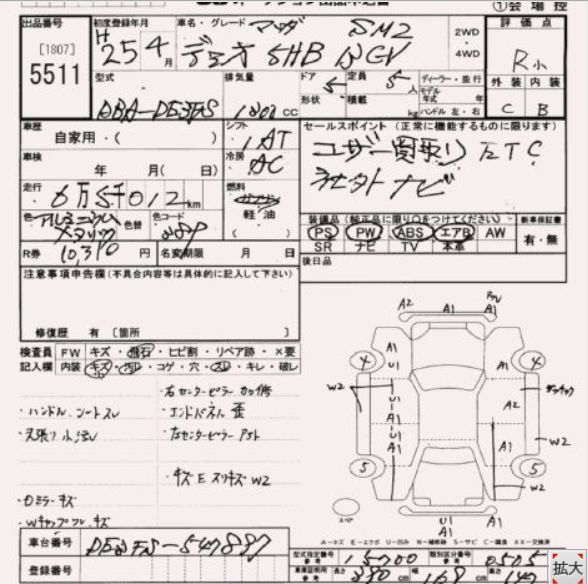 ①会場控
出品番号
[1807]
5511
初度登録年月
H 25年 4月
車名・グレード
マツダ SM2
デミオ 5HB 13CV
2WD
4WD
評価点
R小
外装 内装
C B
型式
DBA-DE3FS
排気量
1300cc
ドア形状
5
定員 5人
積載 kg
ディーラー・並行
モデル年式 年
ハンドル 左・右
車歴
自家用・( )
シフト
AT
冷房
AC
車検
年 月( 日)
走行
6万5千012km
燃料
ガソリン
軽油
( )
色 アルミニウムメタリック
色替
色コード
38P
R券
10,310円
名変期限 月 日
セールスポイント (正常に機能するものに限ります)
ユーザー買取り ETC
社外ナビ
装備品(純正品に限り○をつけてください)
PS PW ABS エアB AW
SR ナビ TV 本革
新車保証書
有・無
後日品
注意事項申告欄(不具合内容等は具体的に記入して下さい)
修復歴 有〔箇所 〕
検査員記入欄
FW キズ・飛石・ヒビ割・リペア跡・×要
内装 キズ・汚レ・コゲ・穴・スレ・キレ・破レ
・右センターピラー カロ修
・ハンドル、シートスレ
・エンドパネル 歪
・天張り小汚レ
・左センターピラー
・キズ E スリキズ W2
・ロミラーキズ
・Wキャップ キズ
A2 A1 A1
4 A1 U1 A1 4
W2 A1 A2
U1 A1 U1 A1 W2
5 A1 5
W2
U1 A1
スペア
A-キズ E-エクボ U-凹み W-補修跡 S-サビ C-腐食 XX-交換済
車台番号
DE3FS-547887
登録番号
型式指定番号
15700
類別区分番号
0505
長さ 390cm
幅 168cm
高さ 147
拡大